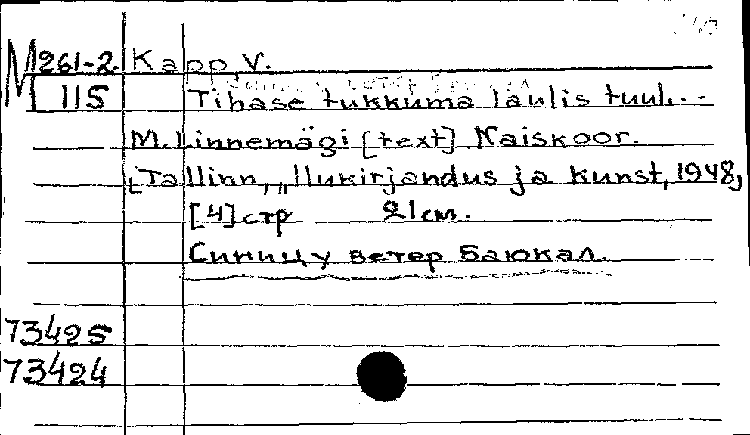 M 261-2 Kapp, V.
115 Tihase tukkuma laulis tuul...
M. Linnemägi [text] Naiskoor.
[Tallinn, „Ilukirjandus ja kunst, 1948,
[4] стр 21 см.
Синицу ветер баюкал.
73425
73424